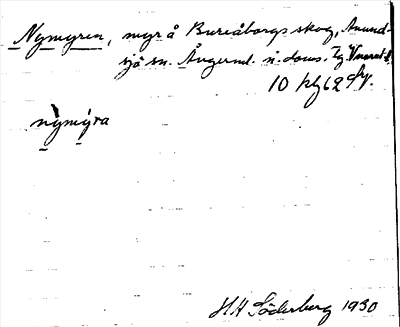 Nymyren, myr å Bureåborgs skog, Anund-
sjö sn. Ångerml. n. doms. Tg
10 kbg
nymyra
H H Söderberg 1930